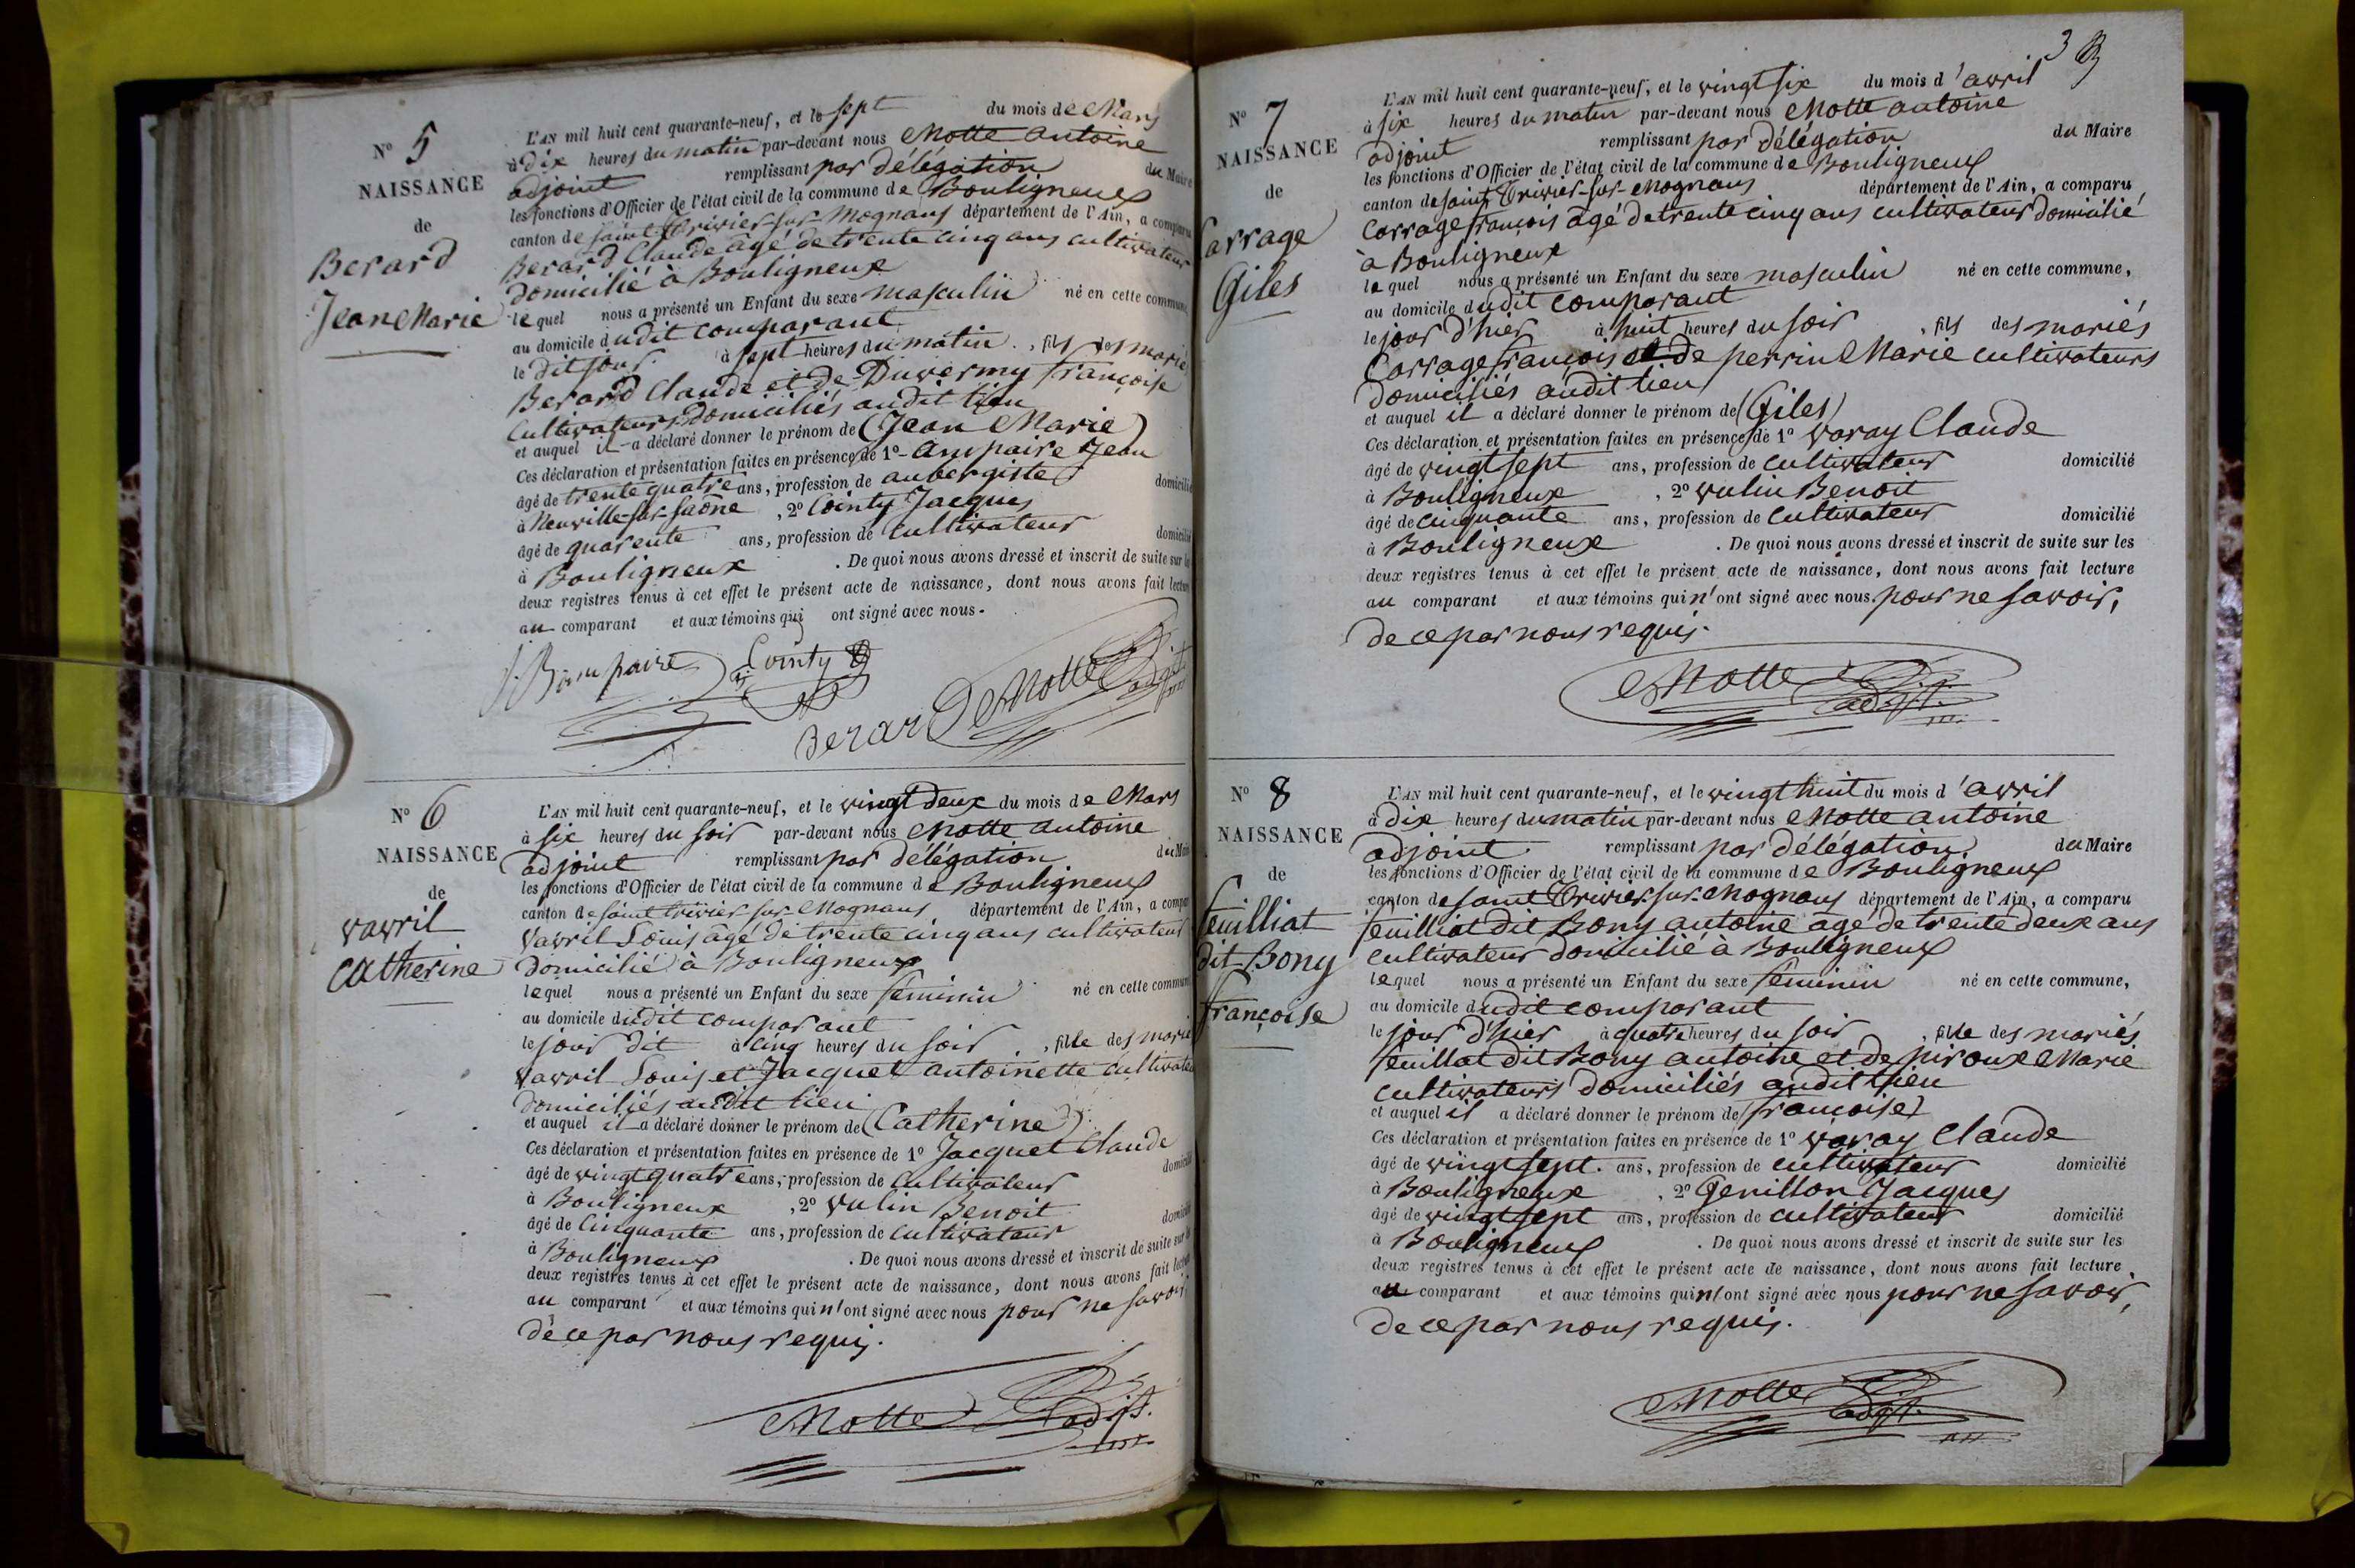 N° 5
NAISSANCE
de
Berard
Jean Marie
L'AN mil huit cent quarante-neuf, et le sept du mois de Mars
à dix heures du matin par-devant nous Motte antoine
adjoint remplissant par délégation du Maire
les fonctions d'Officier de l'état civil de la commune de Bouligneux
canton de saint Trivier-sur-Mognans département de l'Ain, a comparu
Berard Claude âgé de trente cinq ans cultivateur
domicilié à Bouligneux
lequel nous a présenté un Enfant du sexe masculin né en cette commune
au domicile dudit comparant
le dit jour à sept heures du matin, fils des mariés
Berard Claude et de Duvermy françoise
cultivateurs domiciliés audit lieu
et auquel il a déclaré donner le prénom de (Jean Marie)
Ces déclaration et présentation faites en présence de 1° Ampaire Jean
âgé de trente quatre ans, profession de aubergiste domicilié
à Neuville-sur-Saône, 2° Cointy Jacques
âgé de quarente ans, profession de cultivateur domicilié
à Bouligneux. De quoi nous avons dressé et inscrit de suite sur les
deux registres tenus à cet effet le présent acte de naissance, dont nous avons fait lecture
au comparant et aux témoins qui ont signé avec nous.
Cointy
Berard Motte adjt
N° 6
NAISSANCE
de
vavril
Catherine
L'AN mil huit cent quarante-neuf, et le vingt deux du mois de Mars
à six heures du soir par-devant nous Motte antoine
adjoint remplissant par délégation du Maire
les fonctions d'Officier de l'état civil de la commune de Bouligneux
canton de saint trivier-sur-Mognans département de l'Ain, a comparu
vavril Louis âgé de trente cinq ans cultivateur
domicilié à Bouligneux
lequel nous a présenté un Enfant du sexe féminin né en cette commune
au domicile dudit comparant
le jour dit à cinq heures du soir, fille des mariés
vavril Louis et Jacquet antoinette cultivateurs
domiciliés audit lieu
et auquel il a déclaré donner le prénom de (Catherine)
Ces déclaration et présentation faites en présence de 1° Jacquet Claude
âgé de vingt quatre ans, profession de cultivateur domicilié
à Bouligneux, 2° vulin Benoit
âgé de cinquante ans, profession de cultivateur domicilié
à Bouligneux. De quoi nous avons dressé et inscrit de suite sur les
deux registres tenus à cet effet le présent acte de naissance, dont nous avons fait lecture
au comparant et aux témoins qui n'ont signé avec nous pour ne savoir,
de ce par nous requis.
Motte adjt.
3
N° 7
NAISSANCE
de
Carrage
Giles
L'AN mil huit cent quarante-neuf, et le vingt six du mois d'avril
à six heures du matin par-devant nous Motte antoine
adjoint remplissant par délégation du Maire
les fonctions d'Officier de l'état civil de la commune de Bouligneux
canton de saint Trivier-sur-Mognans département de l'Ain, a comparu
Carrage françois âgé de trente cinq ans cultivateur domicilié
à Bouligneux
lequel nous a présenté un Enfant du sexe masculin né en cette commune,
au domicile dudit comparant
le jour d'hier à huit heures du soir, fils des mariés
Carrage françois et de perrin Marie cultivateurs
domiciliés audit lieu
et auquel il a déclaré donner le prénom de (Giles)
Ces déclaration et présentation faites en présence de 1° varay Claude
âgé de vingt sept ans, profession de cultivateur domicilié
à Bouligneux, 2° vulin Benoit
âgé de cinquante ans, profession de cultivateur domicilié
à Bouligneux. De quoi nous avons dressé et inscrit de suite sur les
deux registres tenus à cet effet le présent acte de naissance, dont nous avons fait lecture
au comparant et aux témoins qui n'ont signé avec nous pour ne savoir,
de ce par nous requis.
Motte adjt.
N° 8
NAISSANCE
de
feuilliat
dit Bony
françoise
L'AN mil huit cent quarante-neuf, et le vingt huit du mois d'avril
à dix heures du matin par-devant nous Motte antoine
adjoint remplissant par délégation du Maire
les fonctions d'Officier de l'état civil de la commune de Bouligneux
canton de saint Trivier-sur-Mognans département de l'Ain, a comparu
feuilliat dit Bony antoine âgé de trente deux ans
cultivateur domicilié à Bouligneux
lequel nous a présenté un Enfant du sexe féminin né en cette commune,
au domicile dudit comparant
le jour d'hier à quatre heures du soir, fille des mariés
feuillat dit Bony antoine et de piroux Marie
cultivateurs domiciliés audit lieu
et auquel il a déclaré donner le prénom de (françoise)
Ces déclaration et présentation faites en présence de 1° varay Claude
âgé de vingt sept ans, profession de cultivateur domicilié
à Bouligneux, 2° Genillon Jacques
âgé de vingt sept ans, profession de cultivateur domicilié
à Bouligneux. De quoi nous avons dressé et inscrit de suite sur les
deux registres tenus à cet effet le présent acte de naissance, dont nous avons fait lecture
au comparant et aux témoins qui n'ont signé avec nous pour ne savoir,
de ce par nous requis.
Motte adjt.